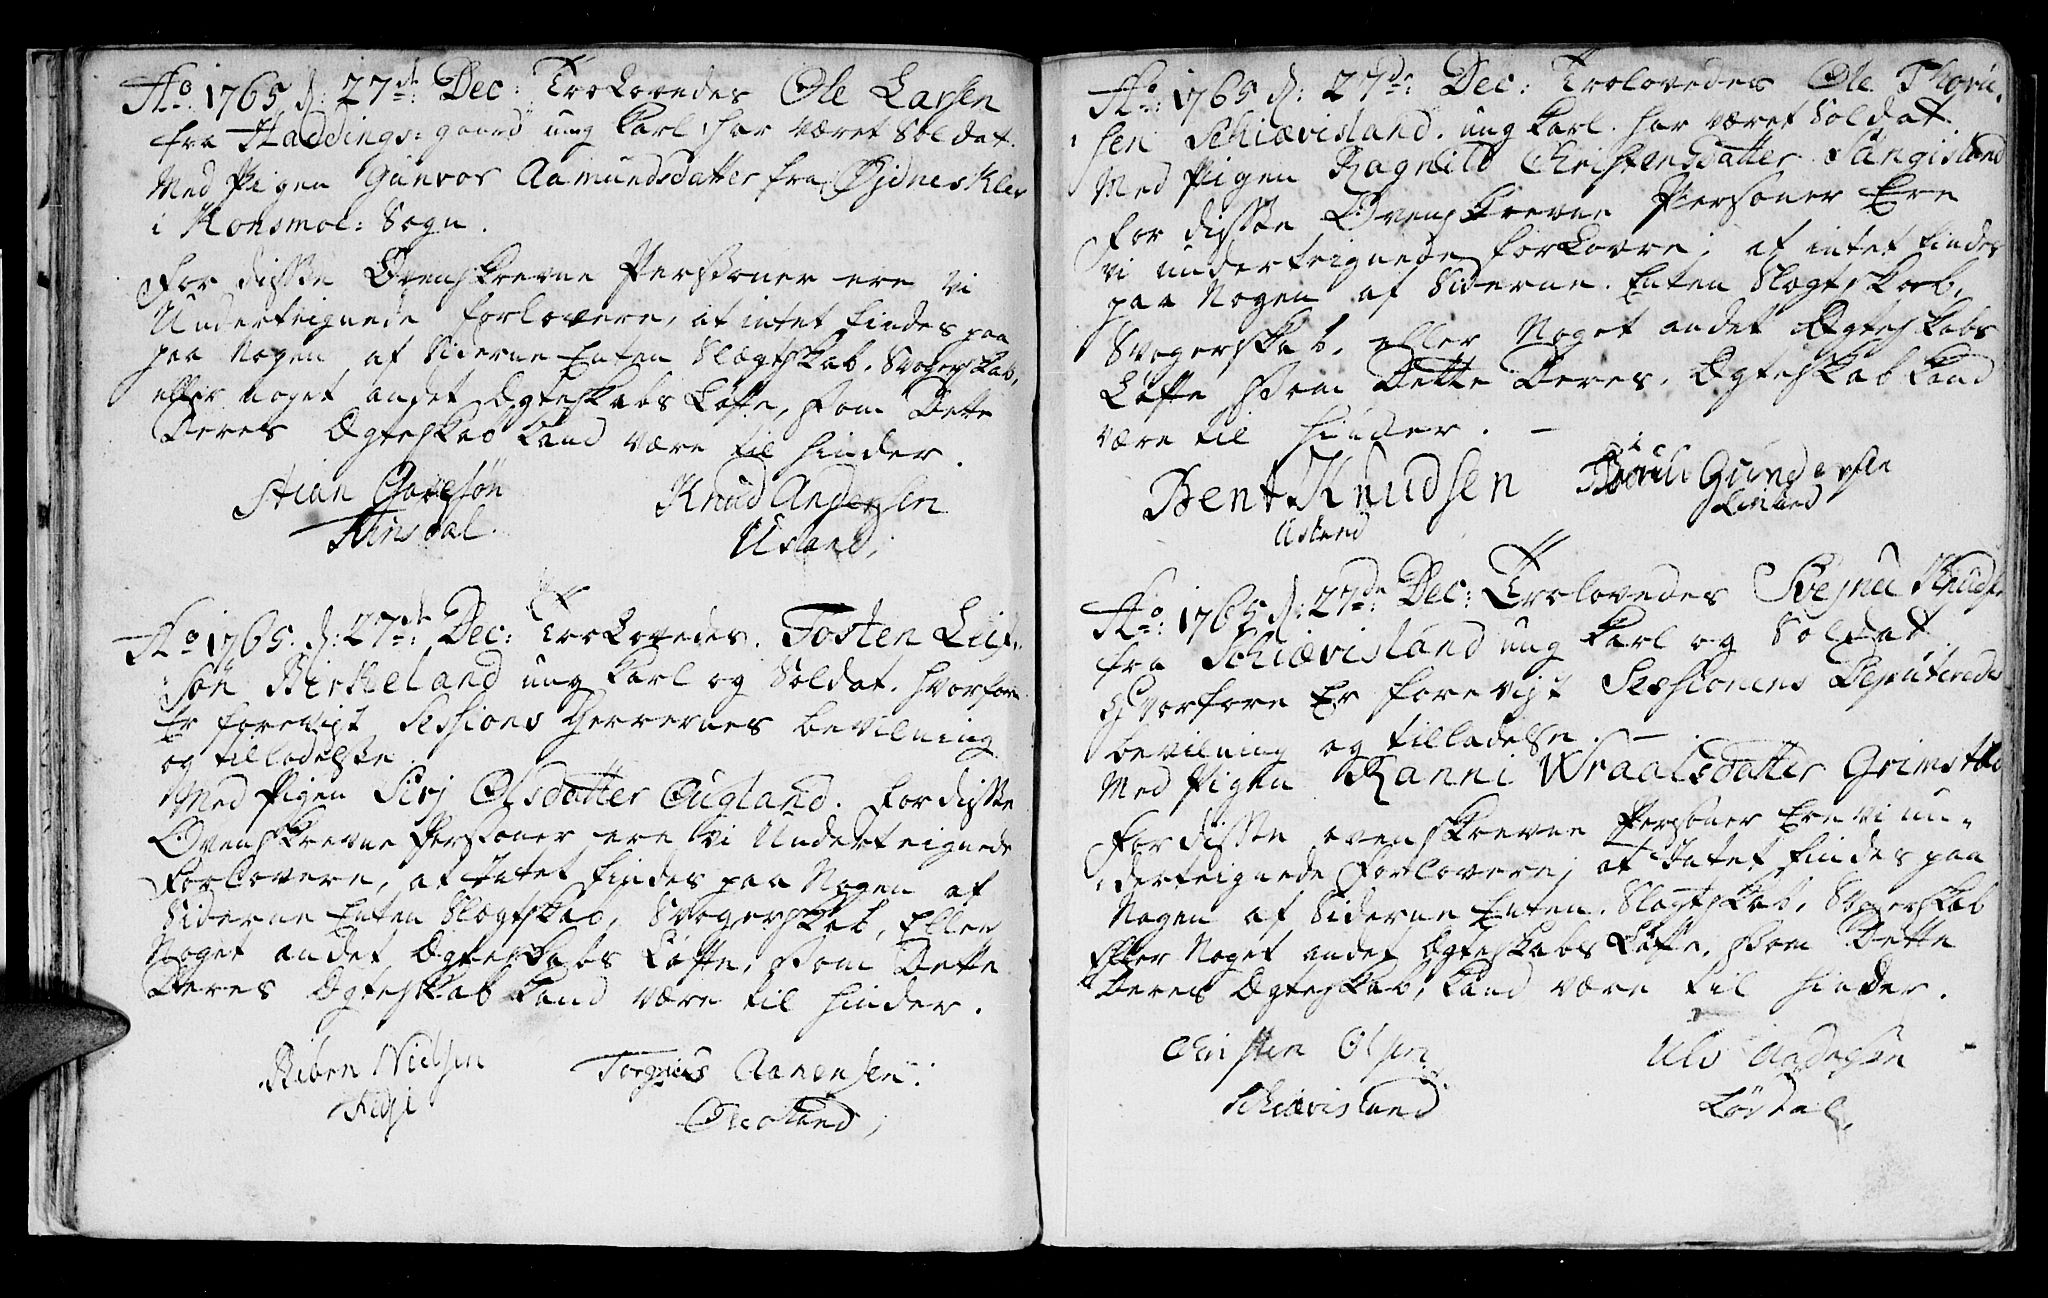 Ao: 1765 d: 27de: Dec: Trolovedes Ole Larsen
fra Haddings: gaard ung karl, har været Soldat.
Med Pigen Gunvor Aamundsdatter fra Øjdneskler
i Konsmoe: Sogn.
For disse Ovenskrevne Persooner ere vi
Underteignede forlovere, at intet findes paa
paa Nogen af Siderne Enten Slægtskab, Svogerskab,
eller noget andet Ægteskabs Løfte, som Dette
Deres Ægteskab kand være til hinder.
Stian
Tinsdal.
Knud Andersen
Usland,
Ao 1765. d: 27de: Dec: Trolovedes. Tosten Leif-
søn Birkeland ung karl og Soldat. hvorfore
Er forevist Sessions Herrernes bevilning
og tilladelsse
Med Pigen Sirj Olsdatter Øugland. For disse
Ovenskrevne Persooner ere vi Underteignede
Forlovere, at Intet findes paa Nogen af
Siderne Enten Slægtskab, Svogerskab, Eller
Noget andet Ægteskabs Løfte, som Dette
Deres Ægteskab kand være til hinder.
Reben Nielsen
Fidje
Torgius Aanensen.
Øresland,
Ao: 1765 d: 27de: Dec: Trolovedes Ole Thoru,
sen Schiævisland. ung karl. har været Soldat
Med Pigen Ragnild Christensdatter Stangisland
For disse Ovenskrevne Personer Ere
vi underteignede forlovre; at intet findes
paa Nogen af Siderne. Enten Slægtskab,
Svogerskab, eller Noget andet Ægteskabs
Løfte som Dette Deres. Ægteskab kand
være til hinder. -
Bent Knudsen
Asland
Gunders
Ao: 1765 d: 27de: Dec: Trolovedes Svejnu Knuds
fra Schiævisland ung karl og Soldat
Hvorfore Er forevist Sessionens Deputeredes
bevilning og tilladelse. -
Med Pigen Ranni Wraalsdatter Grimstad
For disse ovenskrevne Personer Ere vi un-
derteignede Forlovere; at Intet findes paa
Nogen af Siderne Enten. Slægtskab, Svogerskab
Eller Noget andet Ægteskabs Løfte, som Dette
Deres Ægteskab, kand være til hinder.
Christen Olsen
Schiævisland
Ulv Andersen
Lørdal,